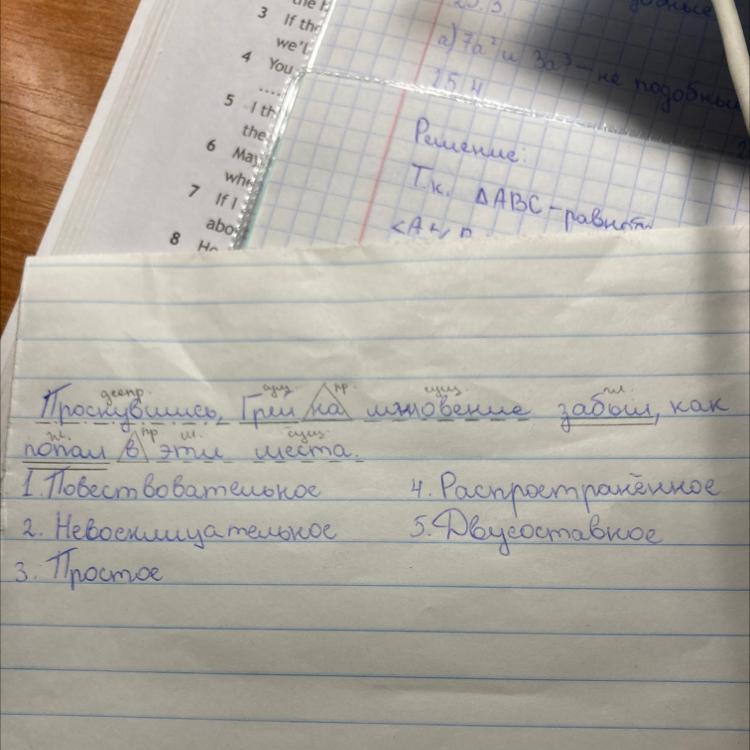 3 If the
we'l
4 You
....
5 I th
the
6 May
whe
7 If I
abo
8 Ho
а) 7a² и 3a³ – не подобны
25.4
Решение:
Т.к. △ABC – равност
деепр. сущ. пр. сущ. гл.
Проснувшись, Грей на мгновение забыл, как
гл. пр м. сущ.
попал в эти места.
1. Повествовательное
2. Невосклицательное
3. Простое
4. Распространённое
5. Двусоставное